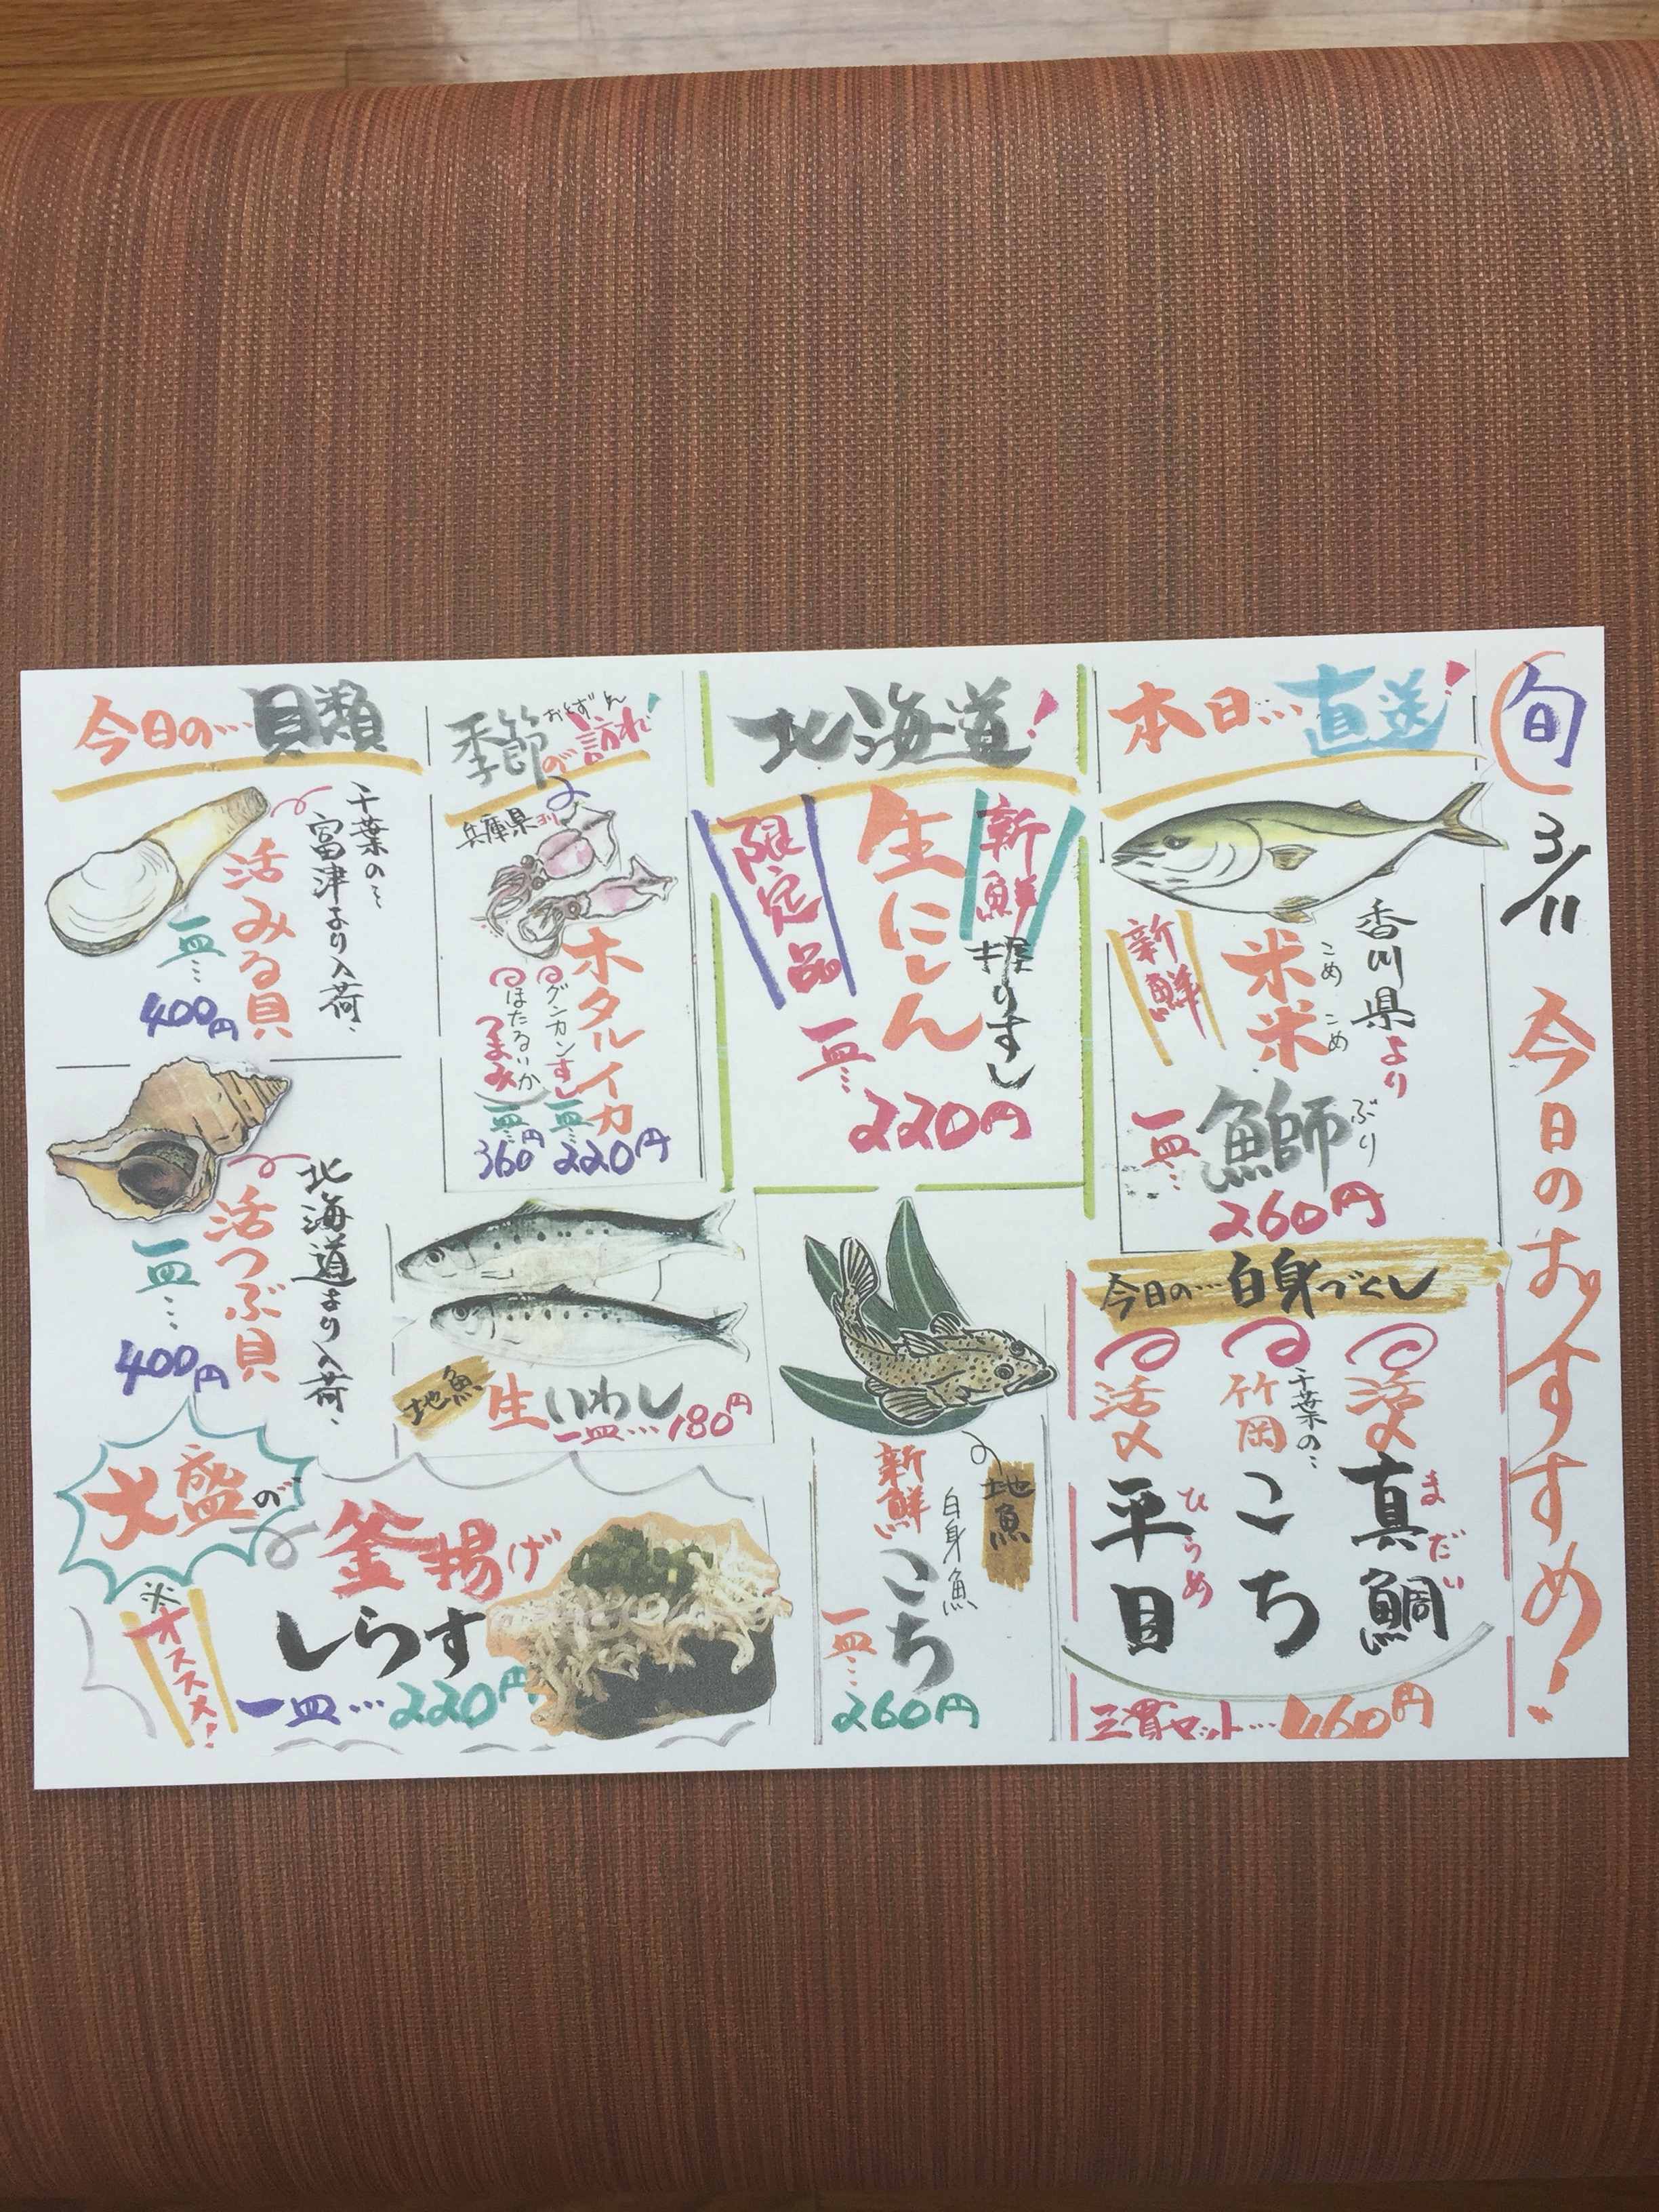 旬
3/11
今日のおすすめ!
本日…直送!
香川県より
新鮮
米米
こめ
こめ
鰤
ぶり
一皿…
260円
今日の…白身づくし
活〆
真鯛
まだい
千葉の…
竹岡
こち
活〆
平目
ひらめ
三貫セット…460円
北海道!
新鮮
握りすし
生にしん
限定品
一皿…
220円
地魚
白身魚
新鮮
こち
一皿…
260円
季節の訪れ!
おとずれ
兵庫県ヨリ
ホタルイカ
グンカンすし
一皿…
220円
ほたるいか
つまみ
一皿…
360円
地魚
生いわし
一皿…180円
今日の…貝類
千葉の…
富津より入荷、
活みる貝
一皿…
400円
北海道より入荷、
活つぶ貝
一皿…
400円
大盛の
釜揚げ
しらす
※オススメ!
一皿…220円